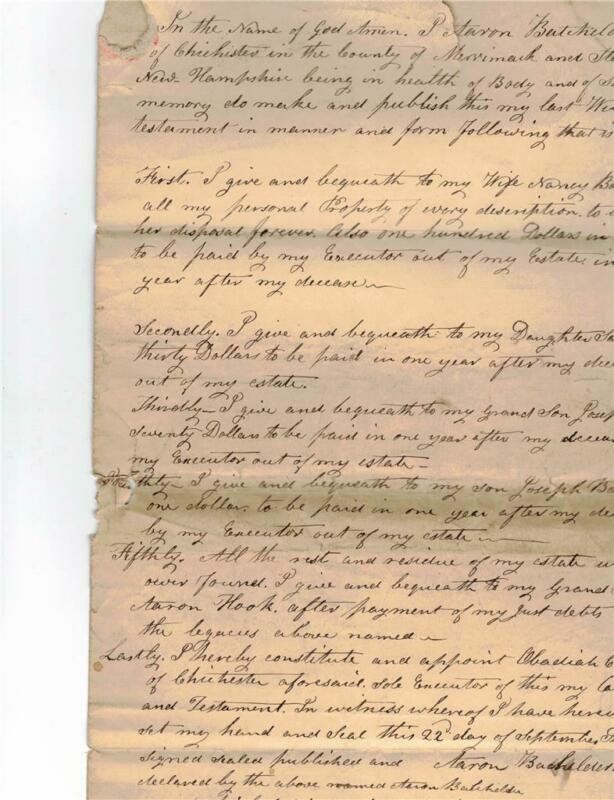 In the Name of God Amen. I Aaron Batcheld
of Chichester in the County of Merrimack and St
New-Hampshire being in health of Body and of S
memory do make and publish this my last Wi
testament in manner and form following that is
First. I give and bequeath to my Wife Nancy B
all my personal Property of every description. to
her disposal forever. Also one hundred Dollars in
to be paid by my Executor out of my Estate in
year after my decease
Secondly. I give and bequeath to my Daughter Sa
thirty Dollars to be paid in one year after my dec
out of my estate.
Thirdly - I give and bequeath to my Grand Son Josep
Seventy Dollars to be paid in one year after my decea
my Executor out of my estate -
Fourthly - I give and bequeath to my son Joseph B
one dollar. to be paid in one year after my de
by my Executor out of my estate
Fifthly. All the rest and residue of my estate w
ever found. I give and bequeath to my Grand
Aaron Hook. after payment of my Just debts
the legacies above named -
Lastly. I hereby constitute and appoint Obadiah
of Chichester aforesaid. Sole Executor of this my
and Testament. In witness whereof I have hereu
set my hand and Seal this 22d day of September
signed sealed published and Aaron Bachelder
declared by the above named Aaron Batchelder